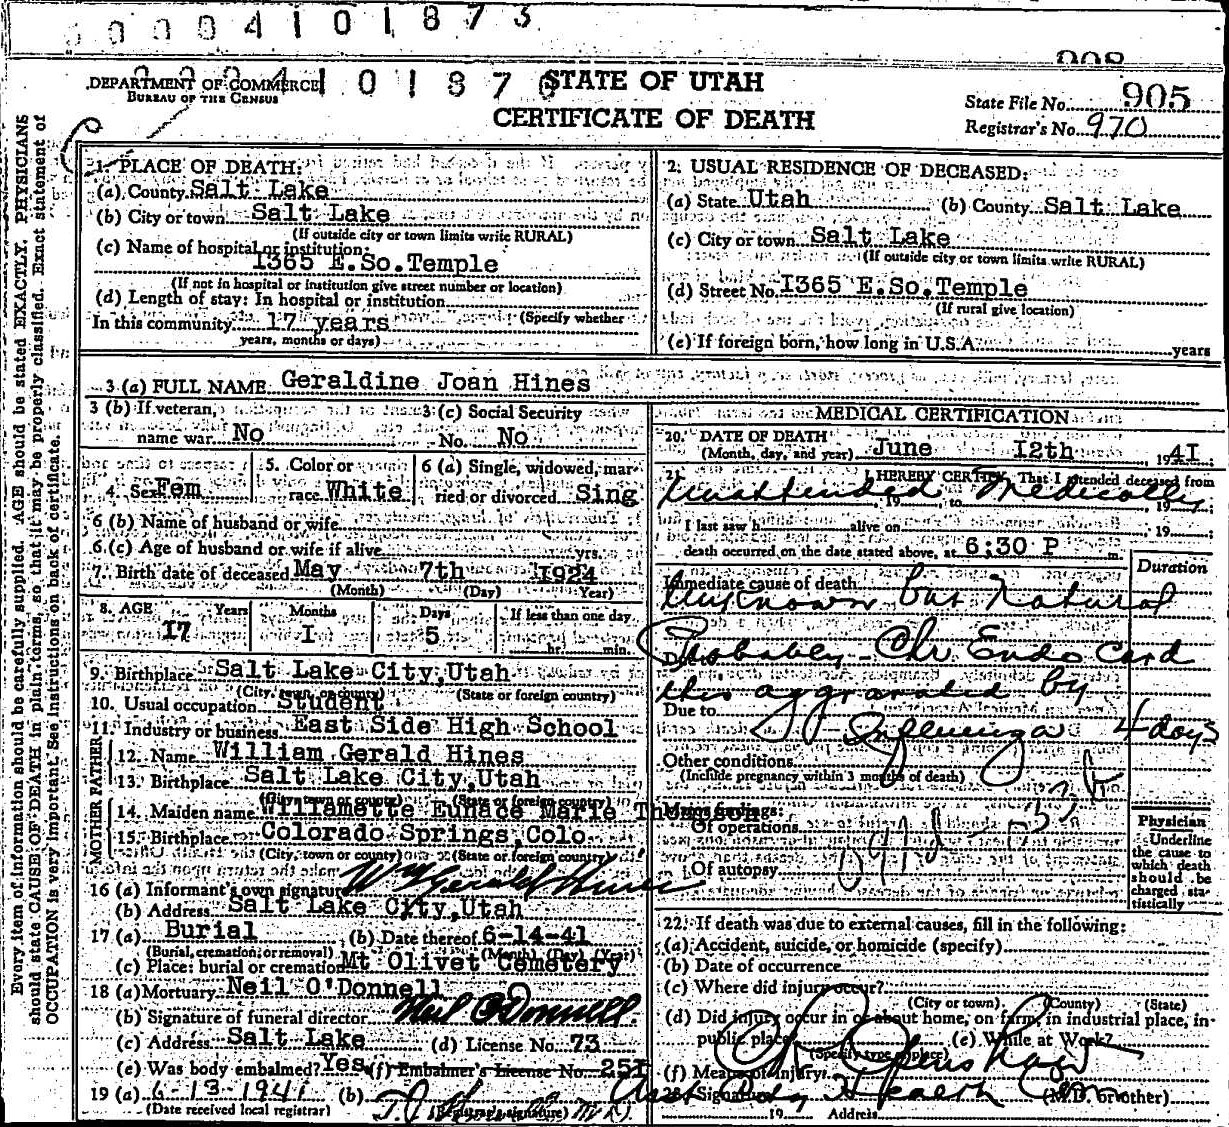 0004101873
908
DEPARTMENT OF COMMERCE
BUREAU OF THE CENSUS
STATE OF UTAH
CERTIFICATE OF DEATH
State File No. 905
Registrar's No. 970
Every item of information should be carefully supplied. AGE should be stated EXACTLY. PHYSICIANS
should state CAUSE OF DEATH in plain terms, so that it may be properly classified. Exact statement of
OCCUPATION is very important. See instructions on back of certificate.
1. PLACE OF DEATH:
(a) County Salt Lake
(b) City or town Salt Lake
(If outside city or town limits write RURAL)
(c) Name of hospital or institution:
I365 E.So.Temple
(If not in hospital or institution give street number or location)
(d) Length of stay: In hospital or institution
(Specify whether
In this community 17 years
years, months or days)
2. USUAL RESIDENCE OF DECEASED:
(a) State Utah (b) County Salt Lake
(c) City or town Salt Lake
(If outside city or town limits write RURAL)
(d) Street No. I365 E.So.Temple
(If rural give location)
(e) If foreign born, how long in U.S.A. years
3 (a) FULL NAME Geraldine Joan Hines
3 (b) If veteran, name war No
3 (c) Social Security No. No
4. Sex Fem
5. Color or race White
6 (a) Single, widowed, married or divorced Sing
6 (b) Name of husband or wife
6 (c) Age of husband or wife if alive yrs.
7. Birth date of deceased May 7th I924
(Month) (Day) (Year)
8. AGE Years Months Days If less than one day
I7 I 5 hr. min.
9. Birthplace Salt Lake City,Utah
(City, town, or county) (State or foreign country)
10. Usual occupation Student
11. Industry or business East Side High School
FATHER
12. Name William Gerald Hines
13. Birthplace Salt Lake City,Utah
(City, town or county) (State or foreign country)
MOTHER
14. Maiden name Willamette Eunace Marie Thompson
15. Birthplace Colorado Springs,Colo.
(City, town or county) (State or foreign country)
16 (a) Informant's own signature Wm Gerald Hines
(b) Address Salt Lake City,Utah
17 (a) Burial (b) Date thereof 6-14-41
(Burial, cremation, or removal) (Month) (Day) (Year)
(c) Place: burial or cremation Mt Olivet Cemetery
18 (a) Mortuary Neil O'Donnell
(b) Signature of funeral director Neil O'Donnell
(c) Address Salt Lake (d) License No. 73
(e) Was body embalmed? Yes (f) Embalmer's License No. 25I
19 (a) 6-13-1941 (b)
(Date received local registrar) (Registrar's signature)
MEDICAL CERTIFICATION
20. DATE OF DEATH
(Month, day, and year) June I2th 194I
21. I HEREBY CERTIFY, That I attended deceased from
Unattended Medically
19 , to 19
I last saw h alive on 19
death occurred on the date stated above, at 6:30 P m.
Duration
Immediate cause of death
Unknown but Natural
Probably Chr Endo Card
this aggravated by
Due to Influenza 4 days
Other conditions
(Include pregnancy within 3 months of death)
Major findings:
Of operations
Of autopsy
Physician
Underline
the cause to
which death
should be
charged sta-
tistically
22. If death was due to external causes, fill in the following:
(a) Accident, suicide, or homicide (specify)
(b) Date of occurrence
(c) Where did injury occur?
(City or town) (County) (State)
(d) Did injury occur in or about home, on farm, in industrial place, in
public place (e) While at Work?
(Specify type of place)
(f) Means of injury
23. Signature (M.D. or other)
19 Address